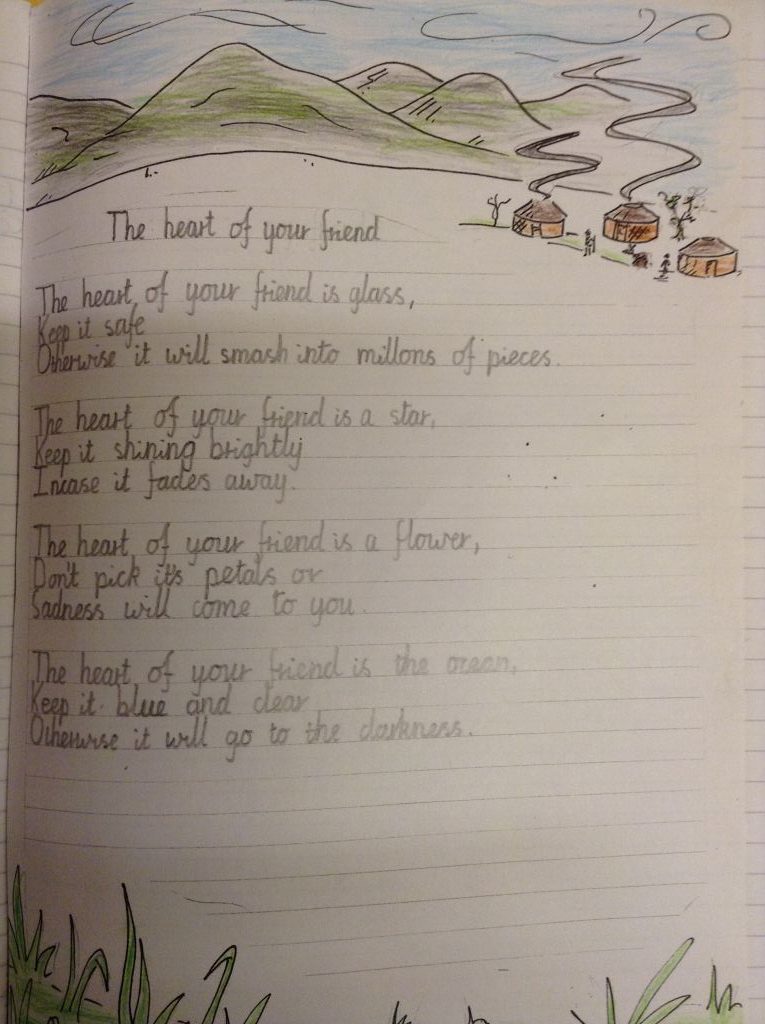 The heart of your friend
The heart of your friend is glass,
Keep it safe
Otherwise it will smash into millons of pieces.
The heart of your friend is a star,
Keep it shining brightly
Incase it fades away.
The heart of your friend is a flower,
Don't pick it's petals or
Sadness will come to you.
The heart of your friend is the ocean,
Keep it blue and clear
Otherwise it will go to the darkness.